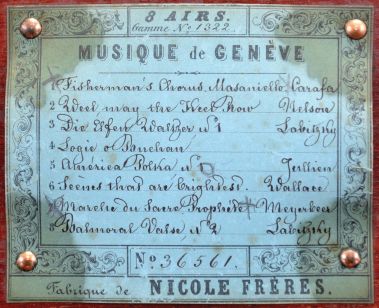 8 AIRS.
Gamme No 1322.
MUSIQUE de GENÈVE
1 Fisherman's Chorus, Masaniello. Carafa
2 Weel may the Keel Row Nelson
3 Die Elfen Waltzer No 1 Labitzky
4 Logie o Buchan
5 América Polka No Jullien
6 Scenes that are brightest. Wallace
7 Marche du Sacre Prophète Meyerbeer
8 Balmoral Valse No 2 Labitzky
No 36561.
Fabrique de NICOLE FRÈRES.